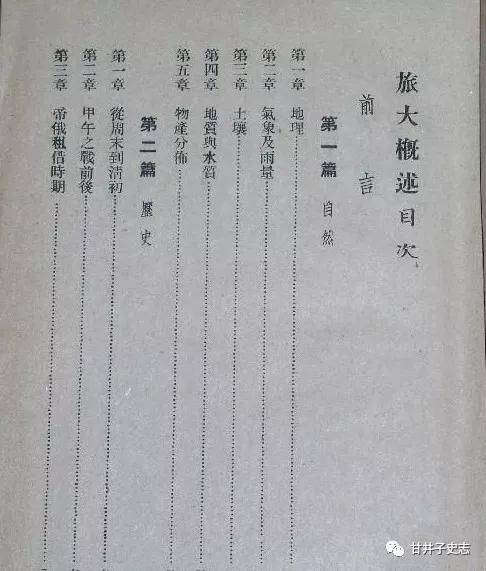 旅大概述目次
前言
第一篇 自然
第一章 地理
第二章 氣象及雨量
第三章 土壤
第四章 地質與水質
第五章 物產分佈
第二篇 歷史
第一章 從周末到清初
第二章 甲午之戰前後
第三章 帝俄租借時期
甘井子史志